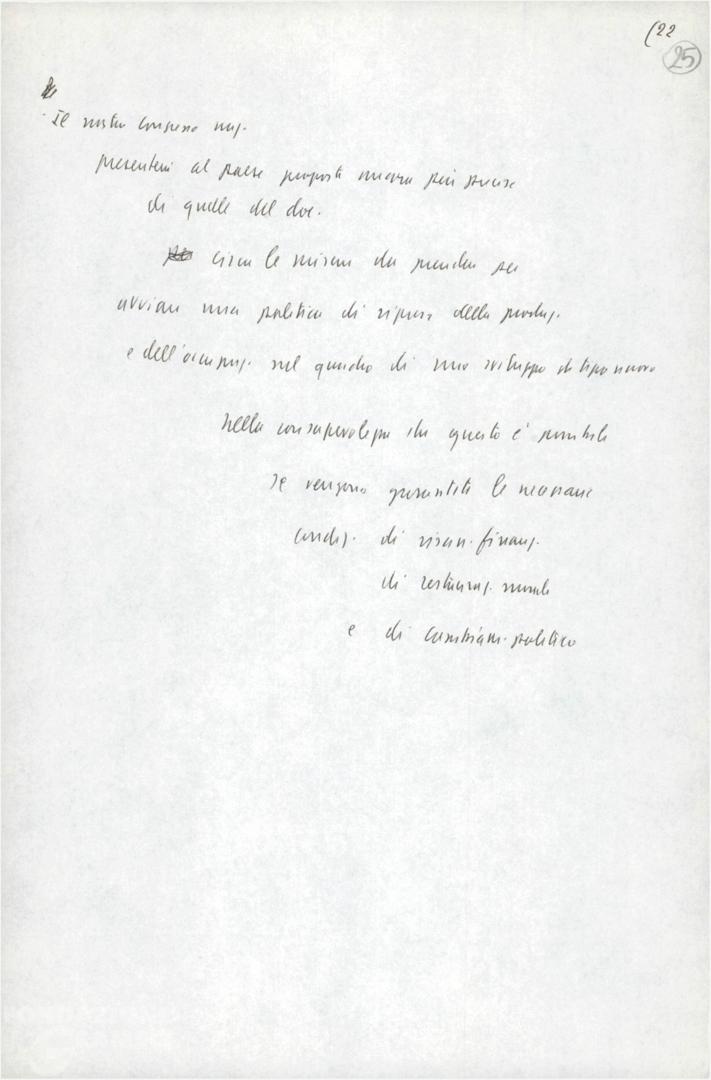 (22
25
Il nostro congresso naz.
presenterà al paese proposte ancora più precise
di quelle del doc.
circa le misure da prendere per
avviare una politica di ripresa della produz.
e dell'occupaz. nel quadro di uno sviluppo di tipo nuovo
Nella consapevolezza che questo è possibile
se vengono garantite le necessarie
condiz. di risan. finanz.
di restauraz. morale
e di cambiam. politico